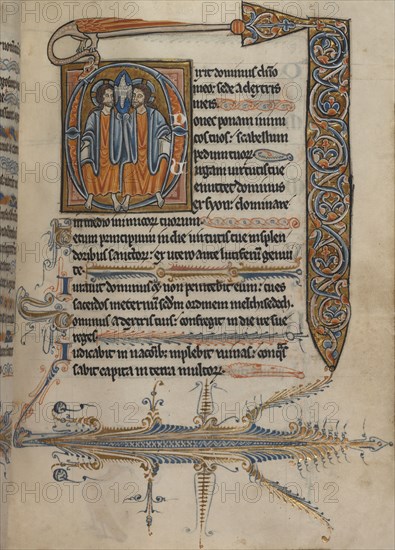 D
ixit dominus dño
meo: sede a dextris
meis.
onec ponam inimi
cos tuos: scabellum
pedum tuor
irgam uirtutis tue
emittet dominus
ex syon: dominare
in medio inimicor tuorum.
ecum principium in die uirtutis tue in splen
doribus sanctor: ex utero ante luciferum genui
te.
Iurauit dominus et non penitebit eum: tu es
sacerdos in eternum sedm ordinem melchisedech.
ominus a dextris tuis: confregit in die ire sue
reges.
Iudicabit in nacoib; implebit ruinas: conqs
sabit capita in terra multor.
PHOTO12